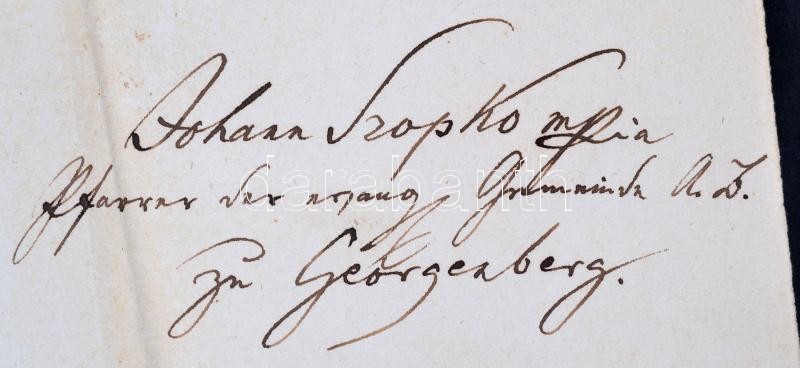 Johann Szopko mpia
Pfarrer der evang. Gemeinde A. B.
zu Georgenberg.
darabanth